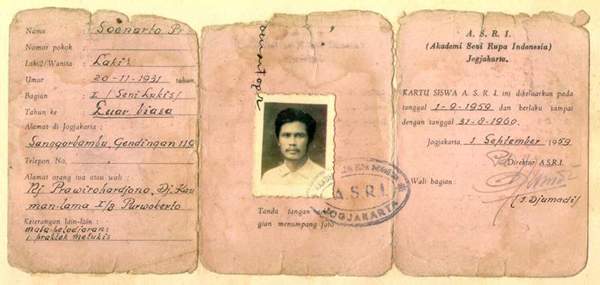 Nama : Soenarto Pr
Nomor pokok :
Laki2/Wanita : Lakis
Umur 20-11-1931 tahun,
Bagian : I / Seni Lukis /
Tahun ke Luar biasa
Alamat di Jogjakarta :
Sanggarbambu, Gendingan 119
Telepon No.
Alamat orang tua atau wali :
Pij Prawirohardjono, Dj. Kau
man-lama I/8 Purwokerto
Keterangan lain-lain :
mata peladjaran:
1. praktek melukis
Soenarto pr
A. S. R. I.
JOGJAKARTA
Tanda tangan
gian menumpang foto
A. S. R. I.
(Akademi Seni Rupa Indonesia)
Jogjakarta.
KARTU SISWA A. S. R. I. ini dikeluarkan pada
tanggal 1-9-1959 dan berlaku sampai
dengan tanggal 31-8-1960.
Jogjakarta, 1 September 1959
Direktur A.S.R.I.
Wali bagian :
(S. Djumadi)